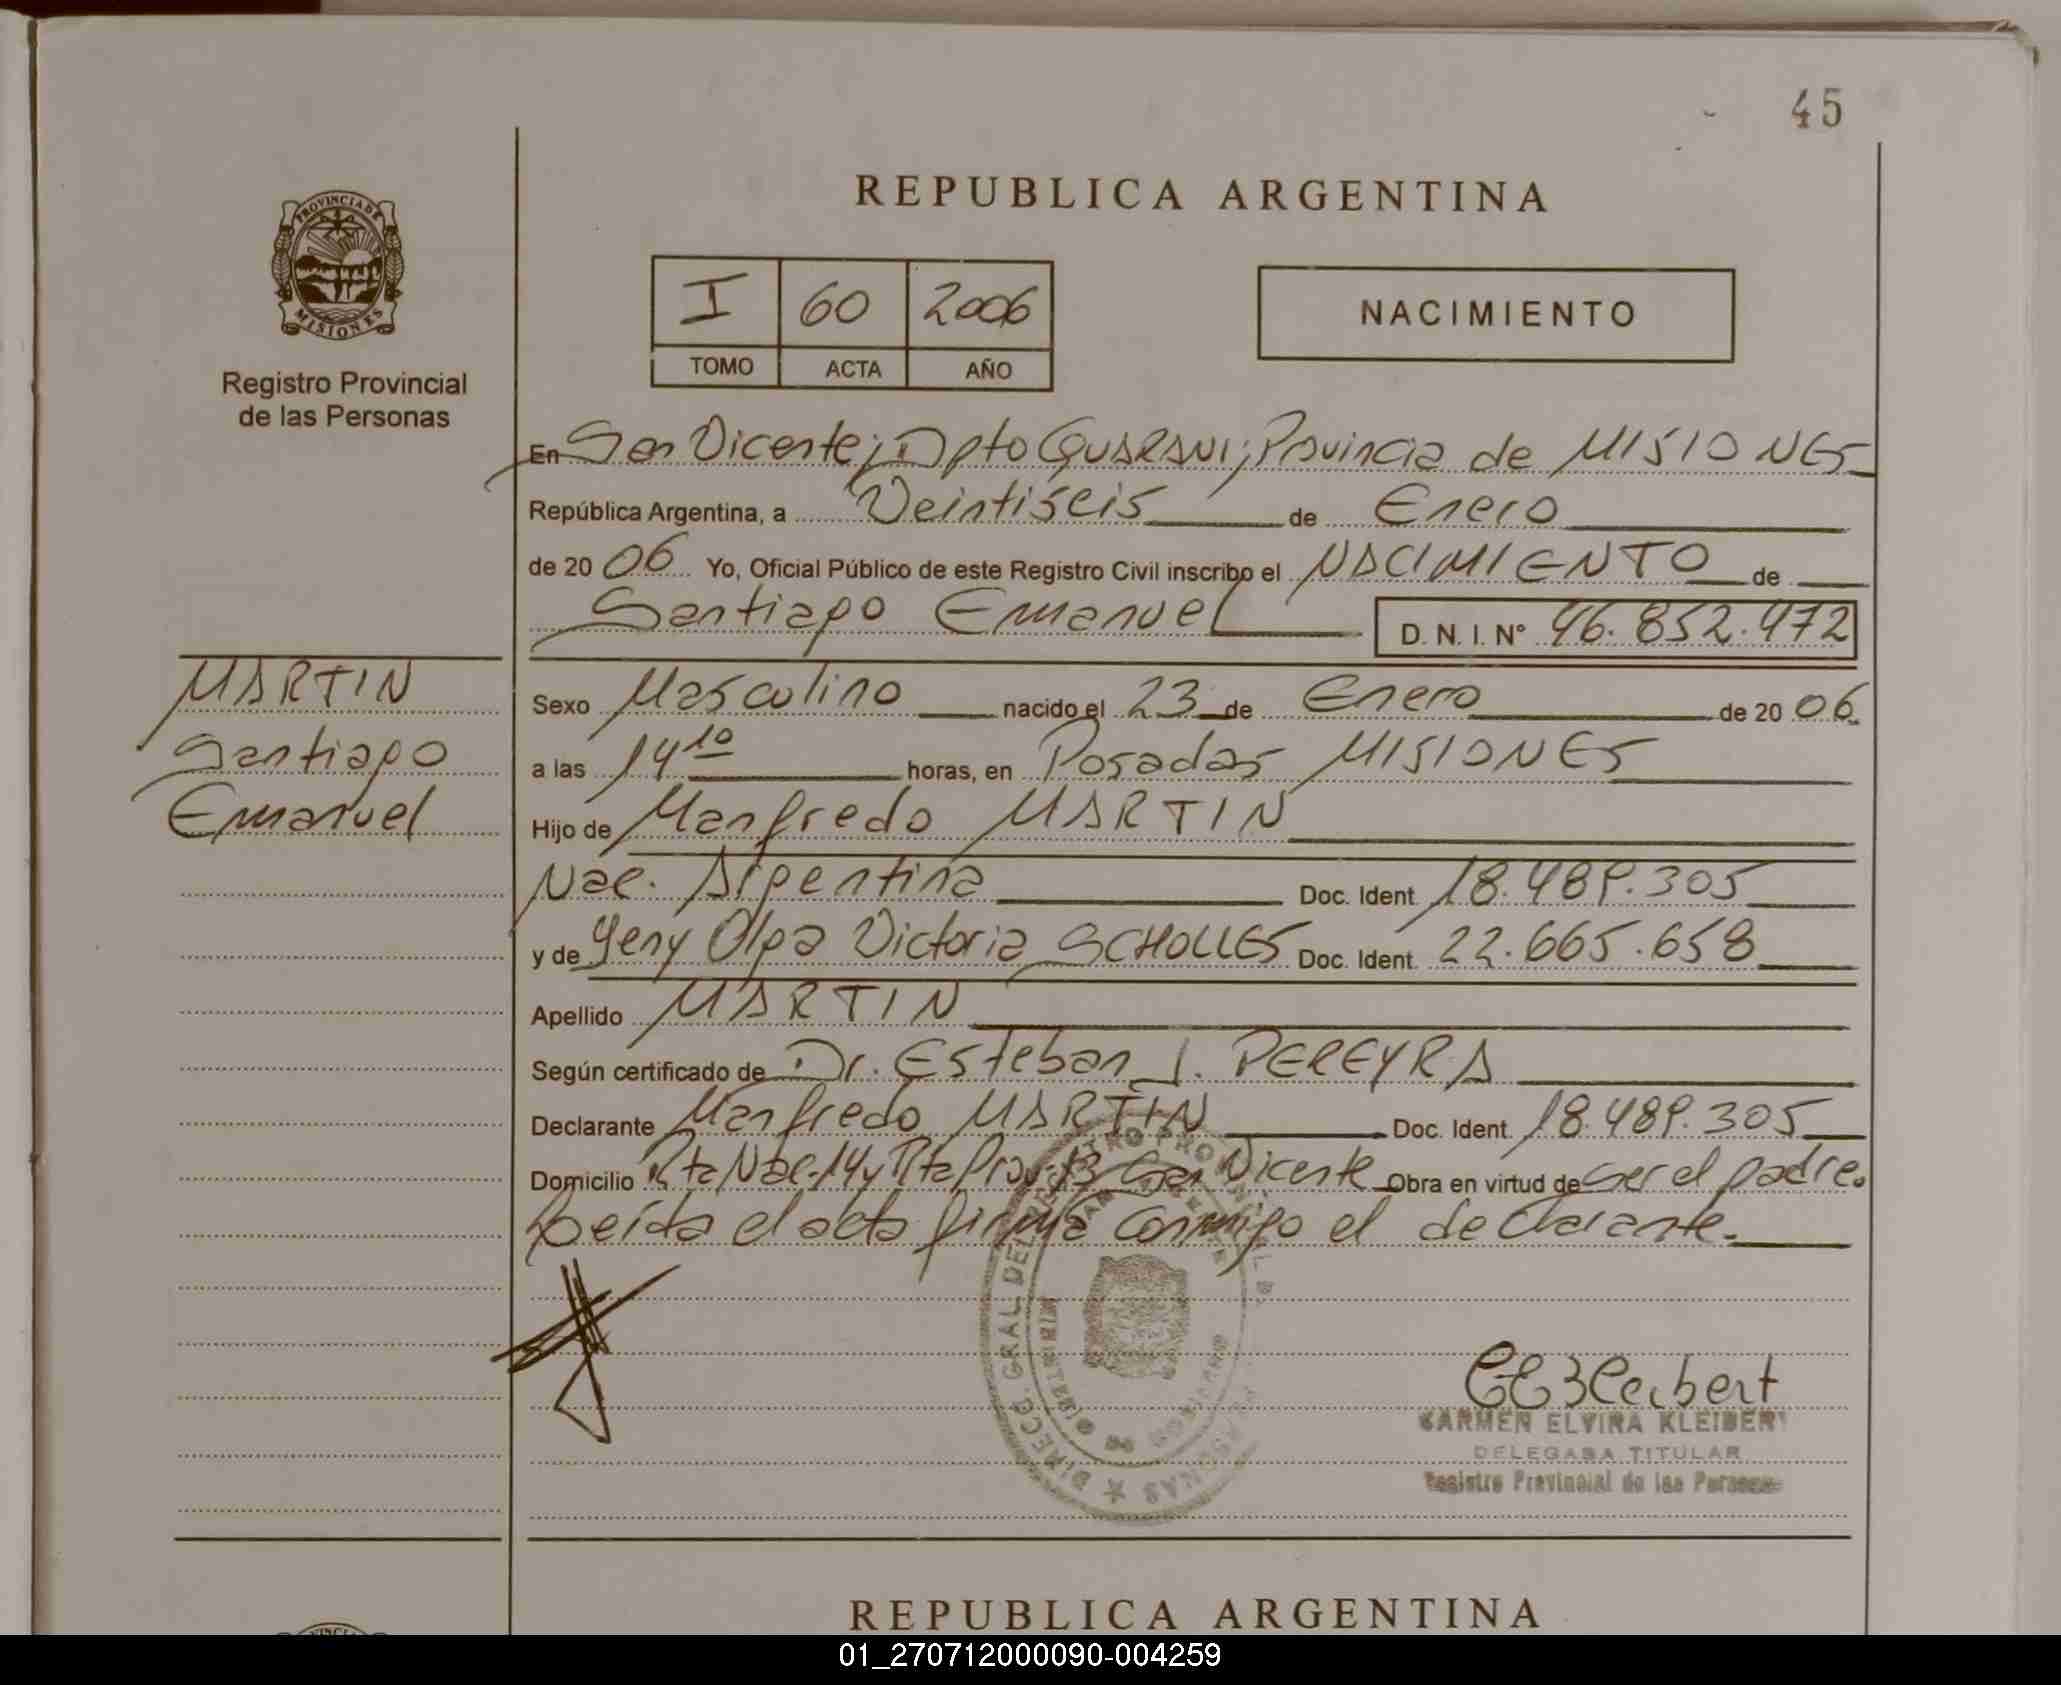 45
REPUBLICA ARGENTINA
PROVINCIA DE
MISIONES
Registro Provincial
de las Personas
I 60 2006
TOMO ACTA AÑO
NACIMIENTO
En San Vicente; Dpto GUARANI; Provincia de MISIONES
República Argentina, a Veintiseis de Enero
de 2006 Yo, Oficial Público de este Registro Civil inscribo el NACIMIENTO de
Santiago Emanuel D. N. I. N° 46.852.472
MARTIN
Santiago
Emanuel
Sexo Masculino nacido el 23 de Enero de 2006
a las 14 10 horas, en Posadas MISIONES
Hijo de Manfredo MARTIN
Nac. Argentina Doc. Ident. 18.489.305
y de Yeny Olga Victoria SCHOLLES Doc. Ident. 22.665.658
Apellido MARTIN
Según certificado de Dr. Esteban J. PEREYRA
Declarante Manfredo MARTIN Doc. Ident. 18.489.305
Domicilio Rta Nac. 14 y Rta Prov. 13 San Vicente Obra en virtud de ser el padre.
Leída el acta firma conmigo el declarante.
CARMEN ELVIRA KLEIBERT
DELEGADA TITULAR
Registro Provincial de las Personas
REPUBLICA ARGENTINA
01_270712000090-004259